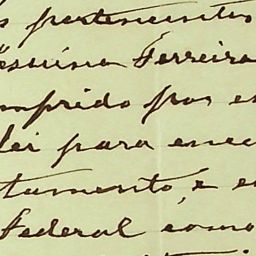 s pertencentes
esuina Ferreira
mprido por es
lei para exec
tamento, e e
Federal como